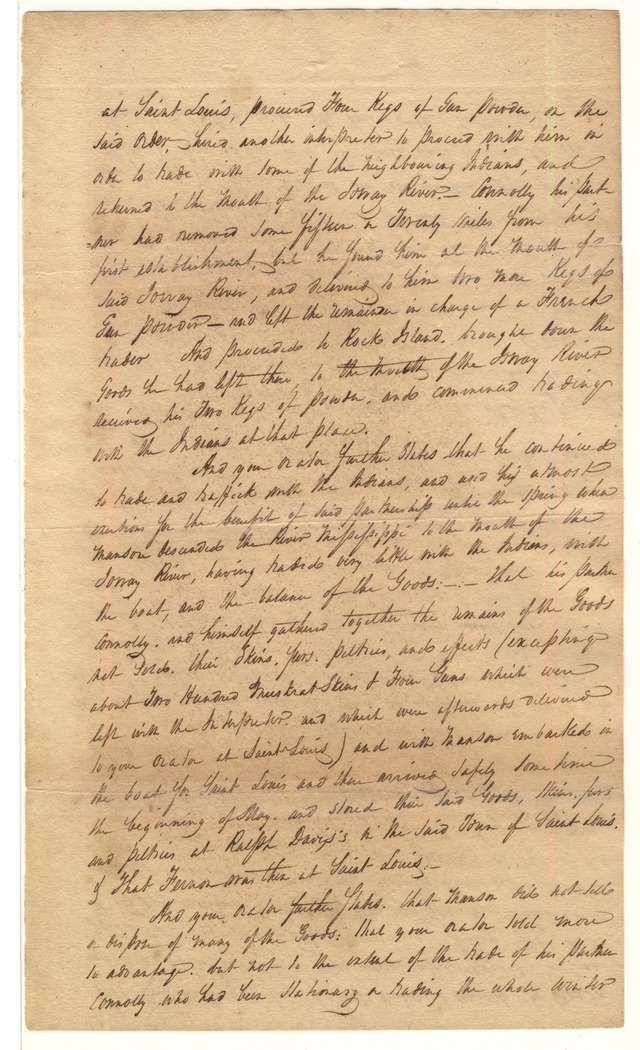 at Saint Louis, procured Four Kegs of Gun Powder, on the
said Order, hired another interpreter to proceed with him in
order to trade with some of the neighbouring Indians, and
returned to the mouth of the Ioway River.— Connolly his part-
-ner had removed some fifteen or Twenty miles from his
first establishment, but he found him at the mouth of
said Ioway River, and delivered to him two more Kegs of
Gun Powder — and left the remainder in charge of a French
trader And proceeded to Rock Island. brought down the
Goods he had left there, to the mouth of the Ioway River
received his Two Kegs of Powder, and commenced trading
with the Indians at that place.
And your orator further States that he continued
to trade and traffick with the Indians, and used his utmost
exertions for the benefit of said partnership untill the spring when
Manson descended the River Missisippi to the mouth of the
Ioway River, having traded very little with the Indians, with
the boat, and the balance of the Goods:—:— That his partner
Connolly. and himself gathered together the remains of the Goods
not Sold. their Skins. furs. peltries, and effects (excepting
about Two Hundred Muskrat Skins & Four Guns which were
left with the Interpreter. and which were afterwards delivered
to your orator at Saint Louis) and with Manson Embarked in
the boat for Saint Louis and there arrived safely some time
the beginning of May. and stored their said Goods, Skins, furs
and peltries at Ralph Davis's in the said Town of Saint Louis.
& That Fernon was then at Saint Louis.—
And your orator further States. that Manson did not sell
or dispose of many of the Goods: that your orator sold more
to advantage. but not to the extent of the trade of his partner
Connolly who had been Stationary & trading the whole winter